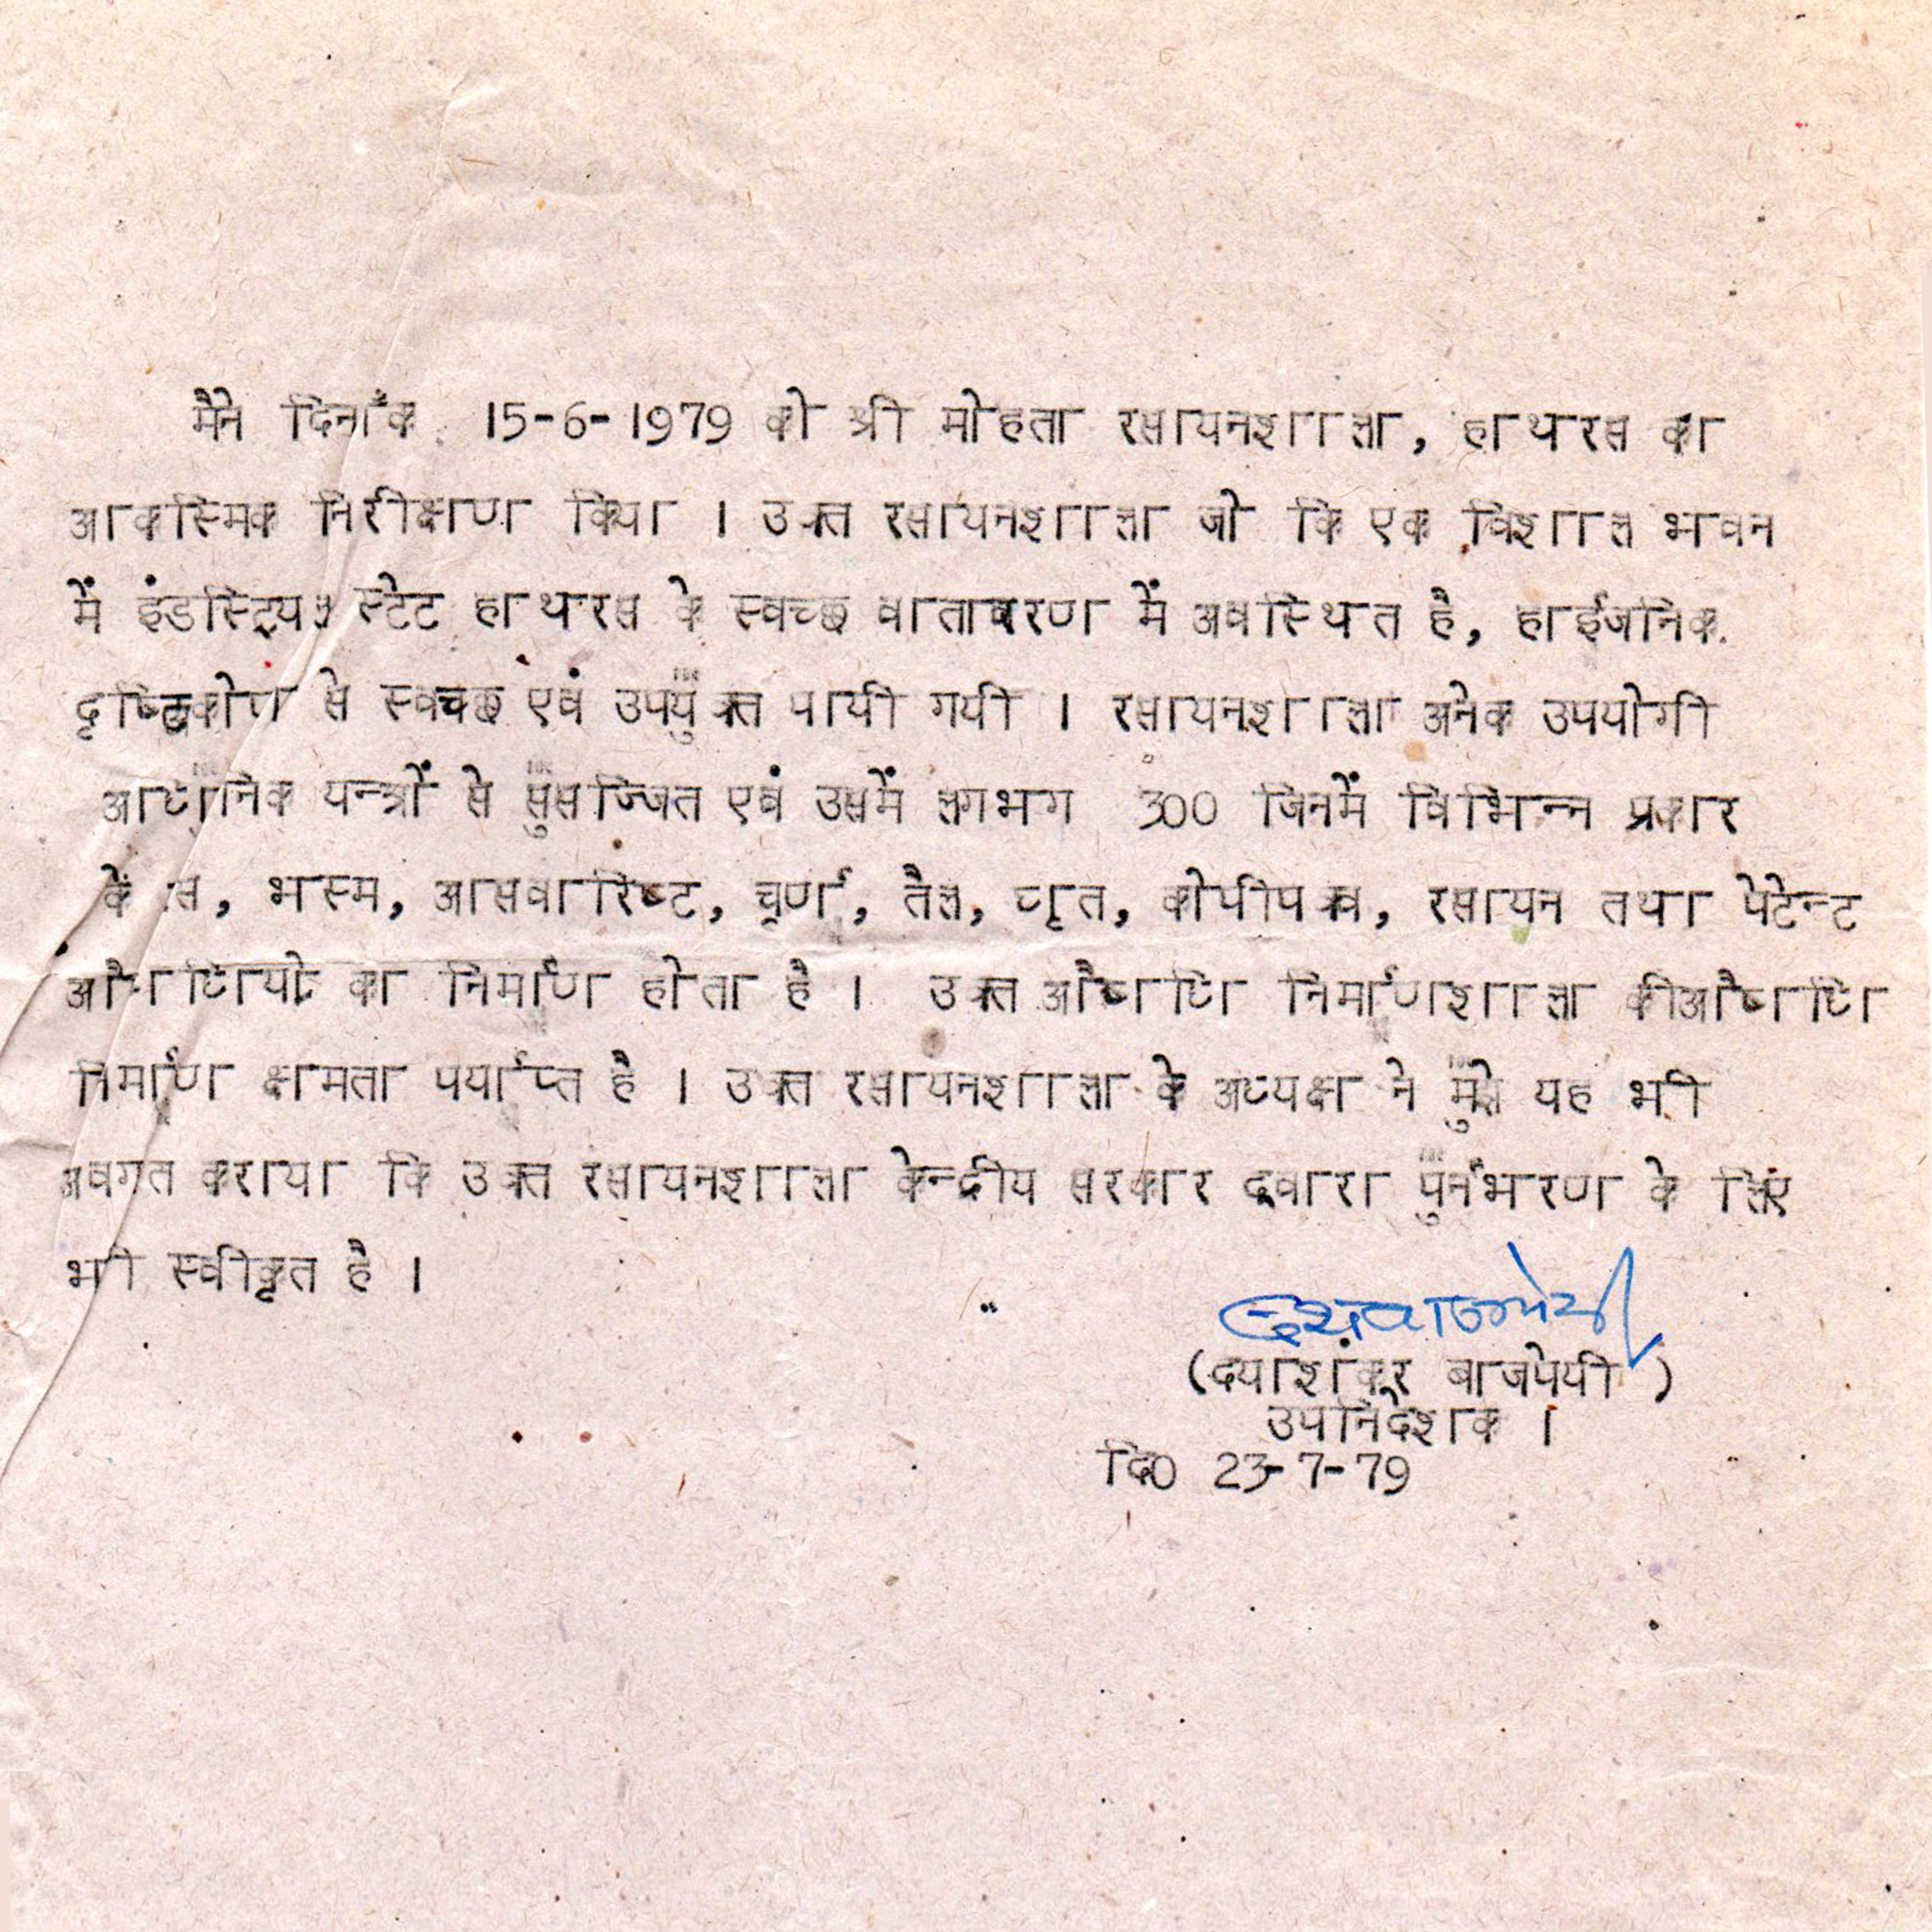 मैने दिनाँक 15-6-1979 को श्री मोहता रसायनशाला, हाथरस का
आकस्मिक निरीक्षण किया । उक्त रसायनशाला जो कि एक विशाल भवन
में इंडस्ट्रियल स्टेट हाथरस के स्वच्छ वातावरण में अवस्थित है, हाईजनिक
दृष्टिकोण से स्वच्छ एवं उपयुक्त पायी गयी । रसायनशाला अनेक उपयोगी
आधुनिक यन्त्रों से सुसज्जित एवं उसमें लगभग 300 जिनमें विभिन्न प्रकार
के रस, भस्म, आसवारिष्ट, चूर्ण, तैल, घृत, कोपीपक्व, रसायन तथा पेटेन्ट
औषधियो का निर्माण होता है । उक्त औषधि निर्माणशाला की औषधि
निर्माण क्षमता पर्याप्त है । उक्त रसायनशाला के अध्यक्ष ने मुझे यह भी
अवगत कराया कि उक्त रसायनशाला केन्द्रीय सरकार द्वारा पुर्नभरण के लिए
भी स्वीकृत है ।
(दयाशंकर बाजपेयी )
उपनिदेशक ।
दि0 23-7-79